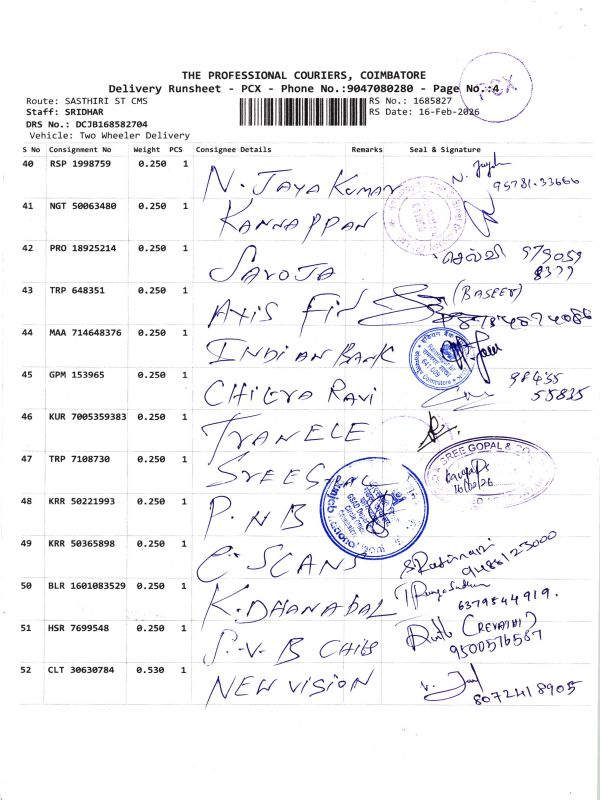 THE PROFESSIONAL COURIERS, COIMBATORE
Delivery Runsheet - PCX - Phone No.:9047080280 - Page No.:4
PCX
Route: SASTHIRI ST CMS
RS No.: 1685827
Staff: SRIDHAR
RS Date: 16-Feb-2026
DRS No.: DCJB168582704
Vehicle: Two Wheeler Delivery
S No Consignment No Weight PCS Consignee Details Remarks Seal & Signature
40 RSP 1998759 0.250 1 N. JAYA KUMAR 95781.33666
41 NGT 50063480 0.250 1 KANNAPPAN
42 PRO 18925214 0.250 1 SAROJA செல்வி 979059
8377
43 TRP 648351 0.250 1 AXIS FIN (BASEER)
44 MAA 714648376 0.250 1 INDIAN BANK
45 GPM 153965 0.250 1 CHITRA RAVI 98435
55835
46 KUR 7005359383 0.250 1
47 TRP 7108730 0.250 1 SREE GOPAL SREE GOPAL & CO
16/02/26
48 KRR 50221993 0.250 1 P.N.B
49 KRR 50365898 0.250 1 C. SCANS 9488125000
50 BLR 1601083529 0.250 1 K. DHANABAL 6379844919.
51 HSR 7699548 0.250 1 S.V.B CHITS (REVATHI)
9500576587
52 CLT 30630784 0.530 1 NEW VISION
8072418905